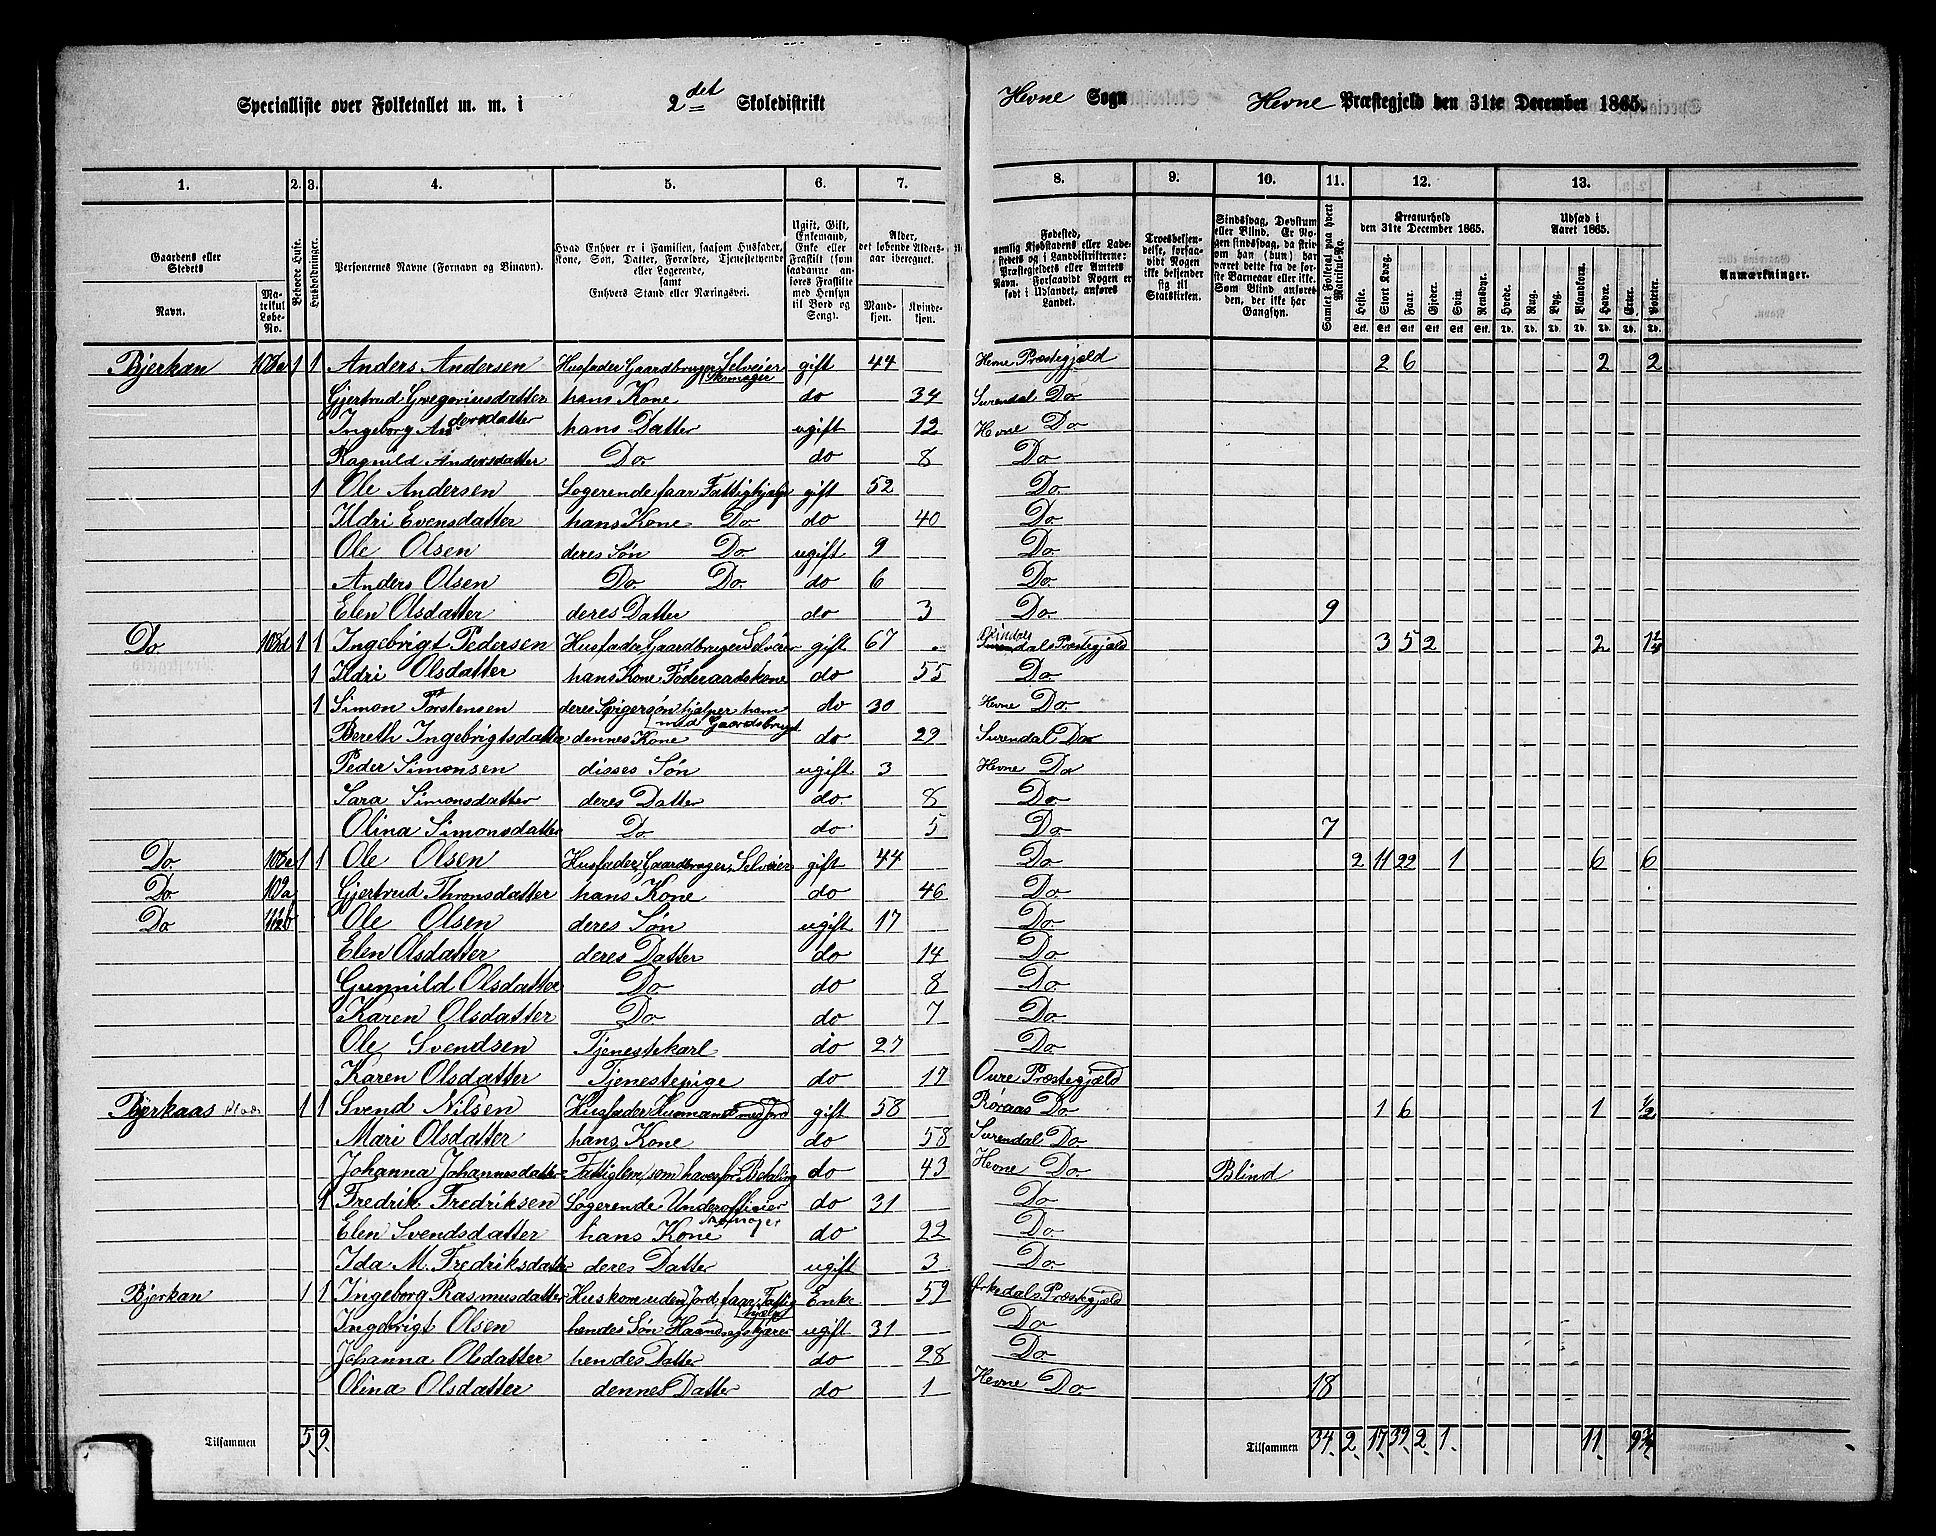 Specialliste over Folketallet m. m. i 2det Skoledistrikt Hevne Sogn Hevne Præstegjeld den 31te December 1865.
1. 2. 3. 4. 5. 6. 7. 8. 9. 10. 11. 12. 13.
Gaardens eller Stedets Navn. Matrikul Løbe-No. Beboede Huse. Husholdninger. Personernes Navne (Fornavn og Binavn).
Hvad Enhver er i Familien, saasom Husfader, Kone, Søn, Datter, Forældre, Tjenestetyende eller Logerende, samt Enhvers Stand eller Næringsvei.
Ugift, Gift, Enkemand, Enke eller Fraskilt (som saadanne anføres Fraskilte med Hensyn til Bord og Seng).
Alder, det løbende Aldersaar iberegnet. Mandkjøn. Kvindekjøn.
Fødested, nemlig Kjøbstadens eller Ladestedets og i Landdistrikterne: Præstegjeldets eller Amtets Navn. Forsaavidt Nogen er født i Udlandet, anføres Landet.
Troesbekjendelse, forsaavidt Nogen ikke bekjender sig til Statskirken.
Sindssvag, Døvstum eller Blind. Er Nogen sindssvag, da skriv om han (hun) har været dette fra de første Barneaar eller ikke. Som Blind anføres den, der ikke har Gangsyn.
Samlet Folketal paa hvert Matrikul-No.
Kreaturhold den 31te December 1865. Heste. Stort Kvæg. Faar. Gjeder. Svin. Rensdyr.
Udsæd i Aaret 1865. Hvede. Rug. Byg. Blandkorn. Havre. Erter. Poteter.
Anmærkninger.
Bjerkan 108a 1 1 Anders Andersen Husfader Gaardbruger Selveier Skomager gift 44 Hevne Præstegjæld 2 6 2 2
Gjertrud Gregoriusdatter hans Kone do 34 Surendal Do
Ingeborg Andersdatter hans Datter ugift 12 Hevne Do
Ragnild Andersdatter Do. do 8 Do
1 Ole Andersen Logerende faar Fattighjælp gift 52 Do.
Ildri Evensdatter hans Kone Do do 40 Do.
Ole Olsen deres Søn Do. ugift 9 Do.
Anders Olsen Do. Do. do 6 Do.
Elen Olsdatter deres Datter do 3 Do. 9
Do 1 1 Ingebrigt Pedersen Husfader Gaardbruger Selveier gift 67 Præstegjæld 3 5 2 2
1 Ildri Olsdatter hans Kone Føderaadskone do 55 Do.
1 Simon Torstensen deres Svigersøn hjælper ham med Gaardsbruget do 30 Hevne Do.
Bereth Ingebrigtsdatter dennes Kone do 29 Surendal Do
Peder Simonsen disses Søn ugift 3 Hevne Do
Sara Simonsdatter deres Datter do. 8 Do
Olina Simonsdatter Do. do. 5 Do 7
Do 1 1 Ole Olsen Husfader, Gaardbruger, Selveier gift 44 Do 2 11 22 1 6 6
Do. 109a Gjertrud Thronsdatter hans Kone do 46 Do.
Do Ole Olsen deres Søn ugift 17 Do.
Elen Olsdatter deres Datter do 14 Do.
Gunnild Olsdatter Do do 8 Do.
Karen Olsdatter Do. do 7 Do.
Ole Svendsen Tjenestekarl do 27 Do.
Karen Olsdatter Tjenestepige do 17 Oure Præstegjæld
Bjerkaas 1 1 Svend Nilsen Husfader Husmand med Jord gift 58 Røraas Do 1 6 1 1/2
Mari Olsdatter hans Kone do 58 Surendal Do.
Johanna Johannesdatter Fattiglem, som haves for Betaling do 43 Hevne Do. Blind
1 Fredrik Fredriksen Logerende Underofficier Skomager do 31 Do
Elen Svendsdatter hans Kone do 22 Do.
Ida M. Fredriksdatter deres Datter ugift 3 Do
Bjerkan 1 1 Ingeborg Rasmusdatter Huskone uden Jord, faar Fattighjælp Enke 59 Ørkedals Præstegjæld
Ingebrigt Olsen hendes Søn ugift 31 Do
Johanna Olsdatter hendes Datter do 28 Do.
Olina Olsdatter dennes Datter do 1 Hevne Do. 18
Tilsammen 5. 9. Tilsammen 34. 2. 17. 39. 2. 1. 11. 9 3/4